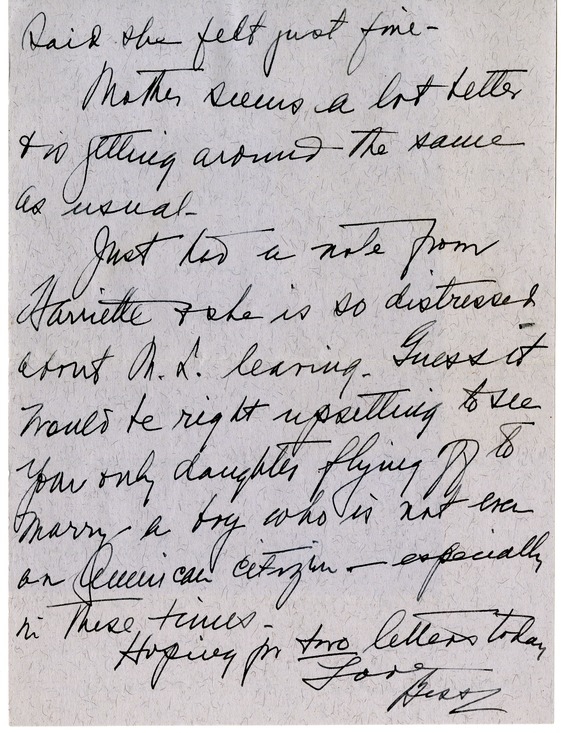 said she felt just fine-
Mother seems a lot better
& is getting around the same
as usual-
Just had a note from
Harriette & she is so distressed
about M. L. leaving. Guess it
would be right upsetting to see
your only daughter flying off to
marry a boy who is not even
an American citizen - especially
in these times-
Hoping for two letters today
Love
Bess